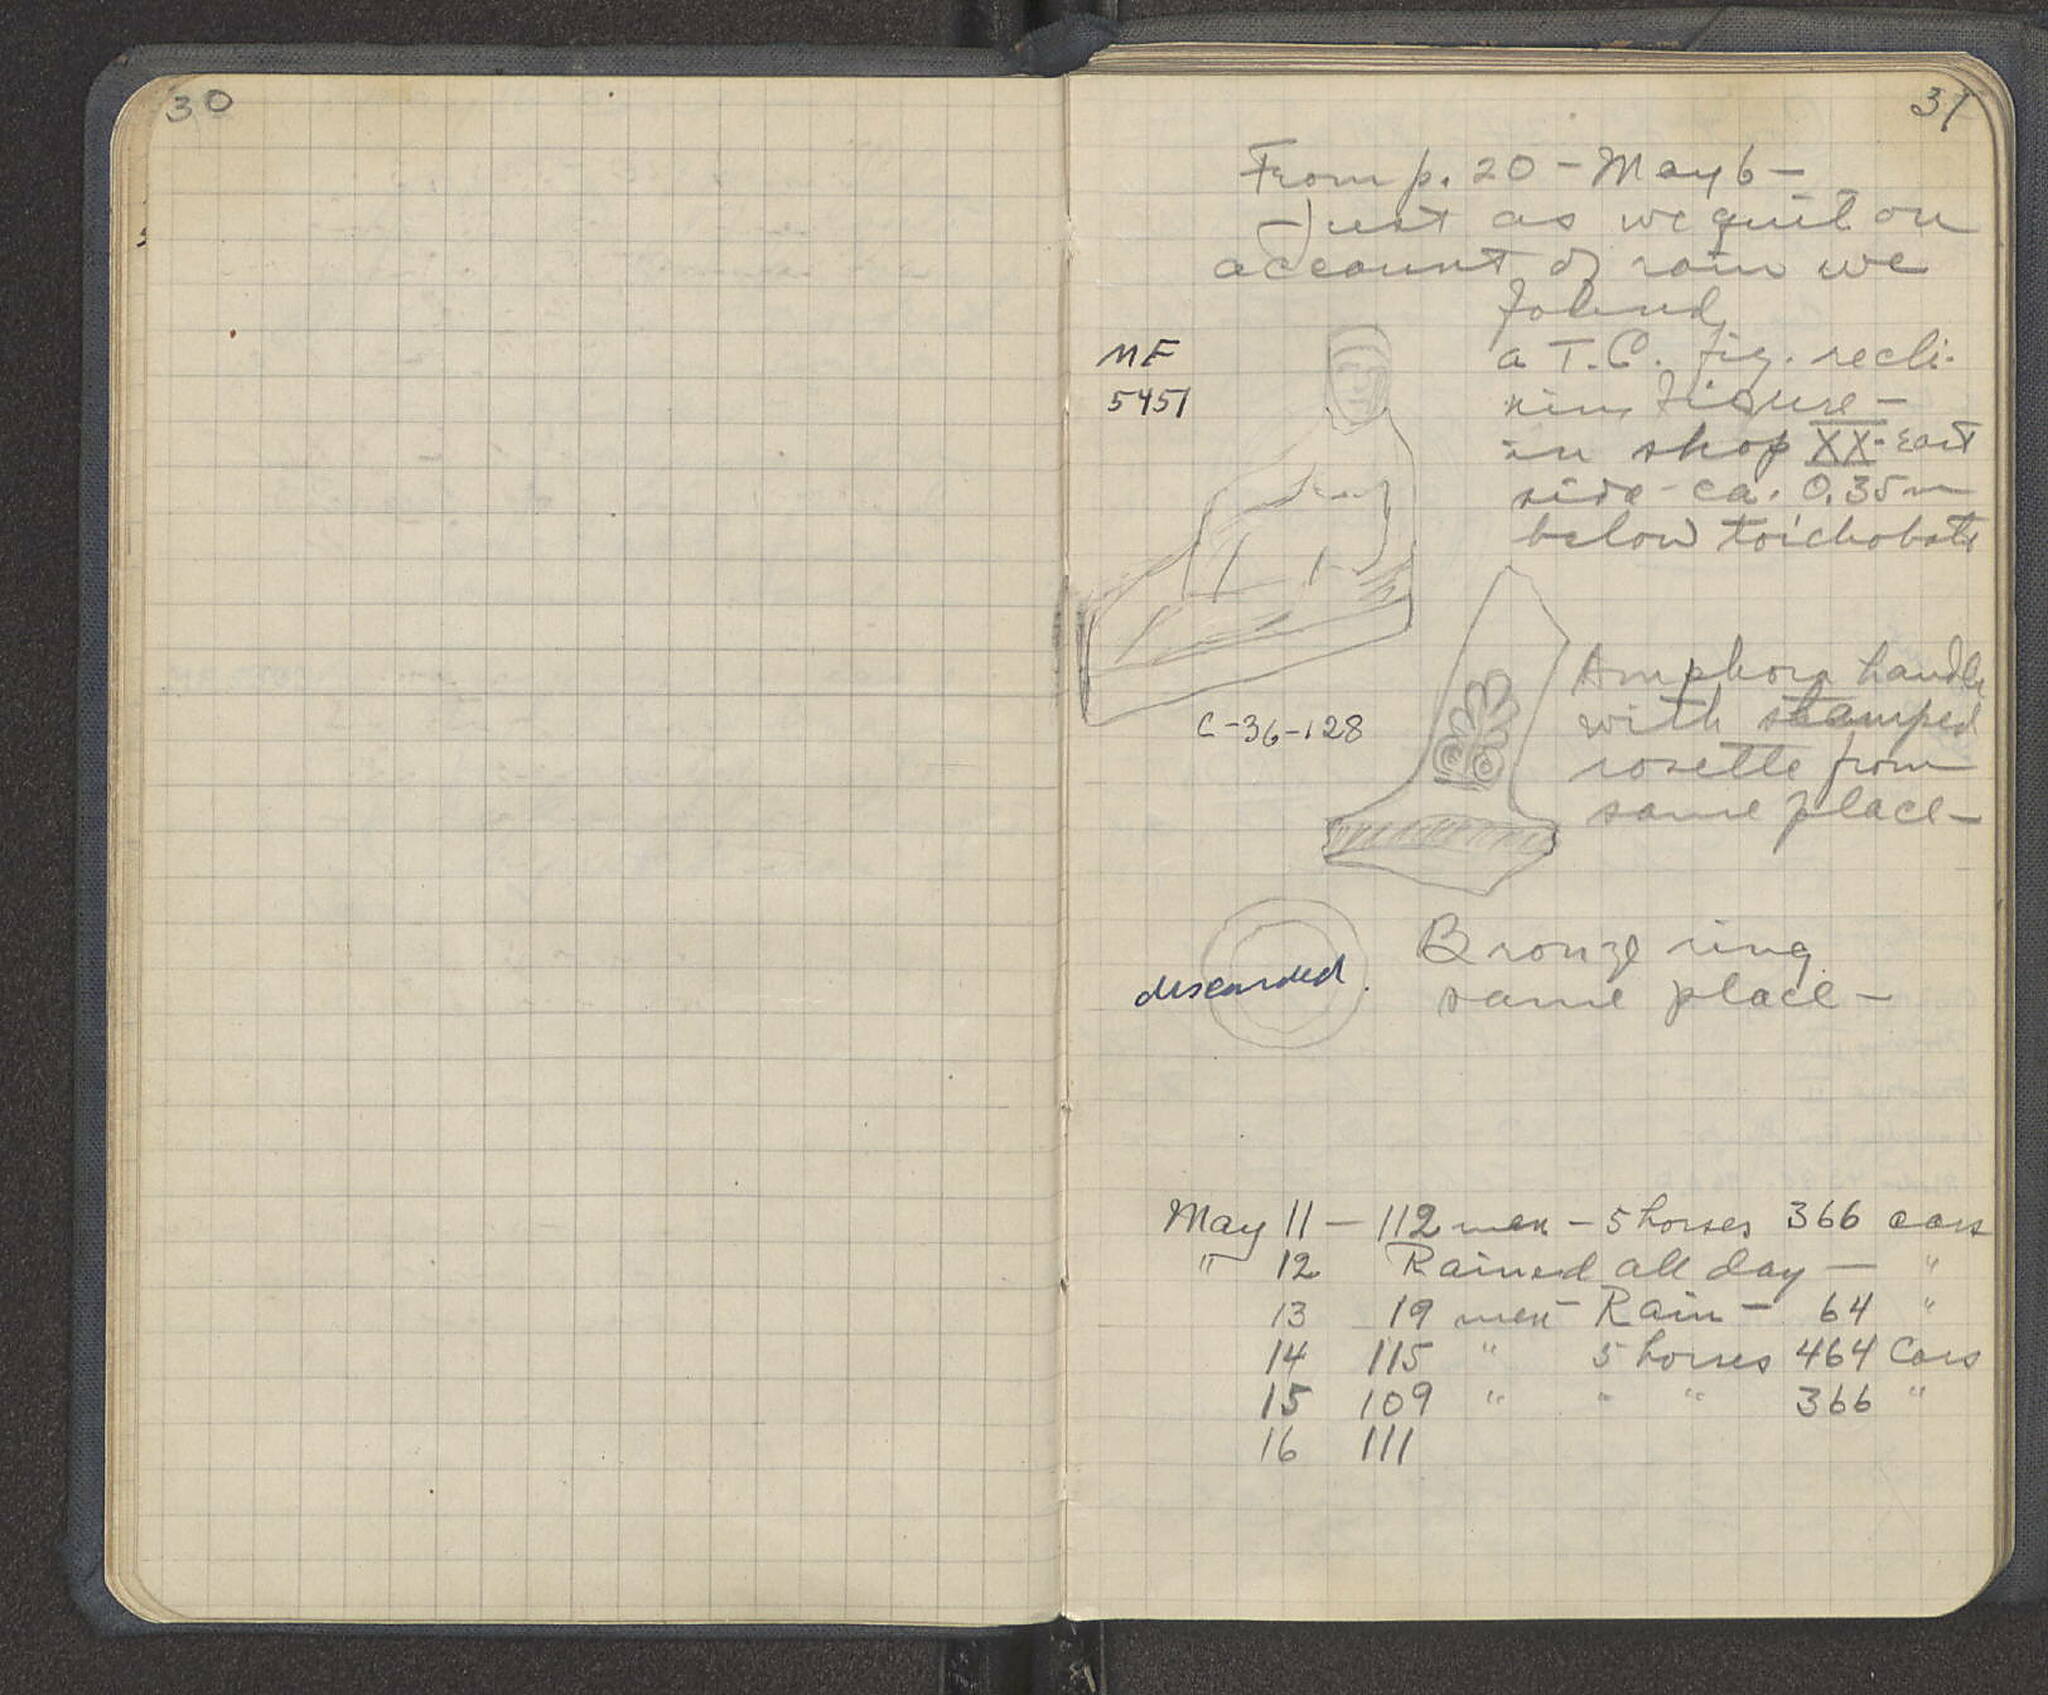 30
31
From p. 20 - May 6 -
Just as we quit on
account of rain we
found
a T.C. fig. recli-
ning figure -
in shop XX - East
side - ca. 0.35 m
below toichobate
MF
5451
Amphora handle
with stamped
rosette from
same place -
C-36-128
Bronze ring
same place -
discarded.
May 11 - 112 men - 5 horses 366 cars
" 12 Rained all day - "
13 19 men - Rain - 64 "
14 115 " 5 horses 464 Cars
15 109 " " " 366 "
16 111